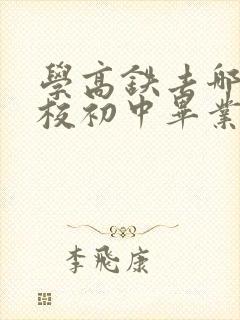 學高鉄去哪
校初中畢業
李飛康